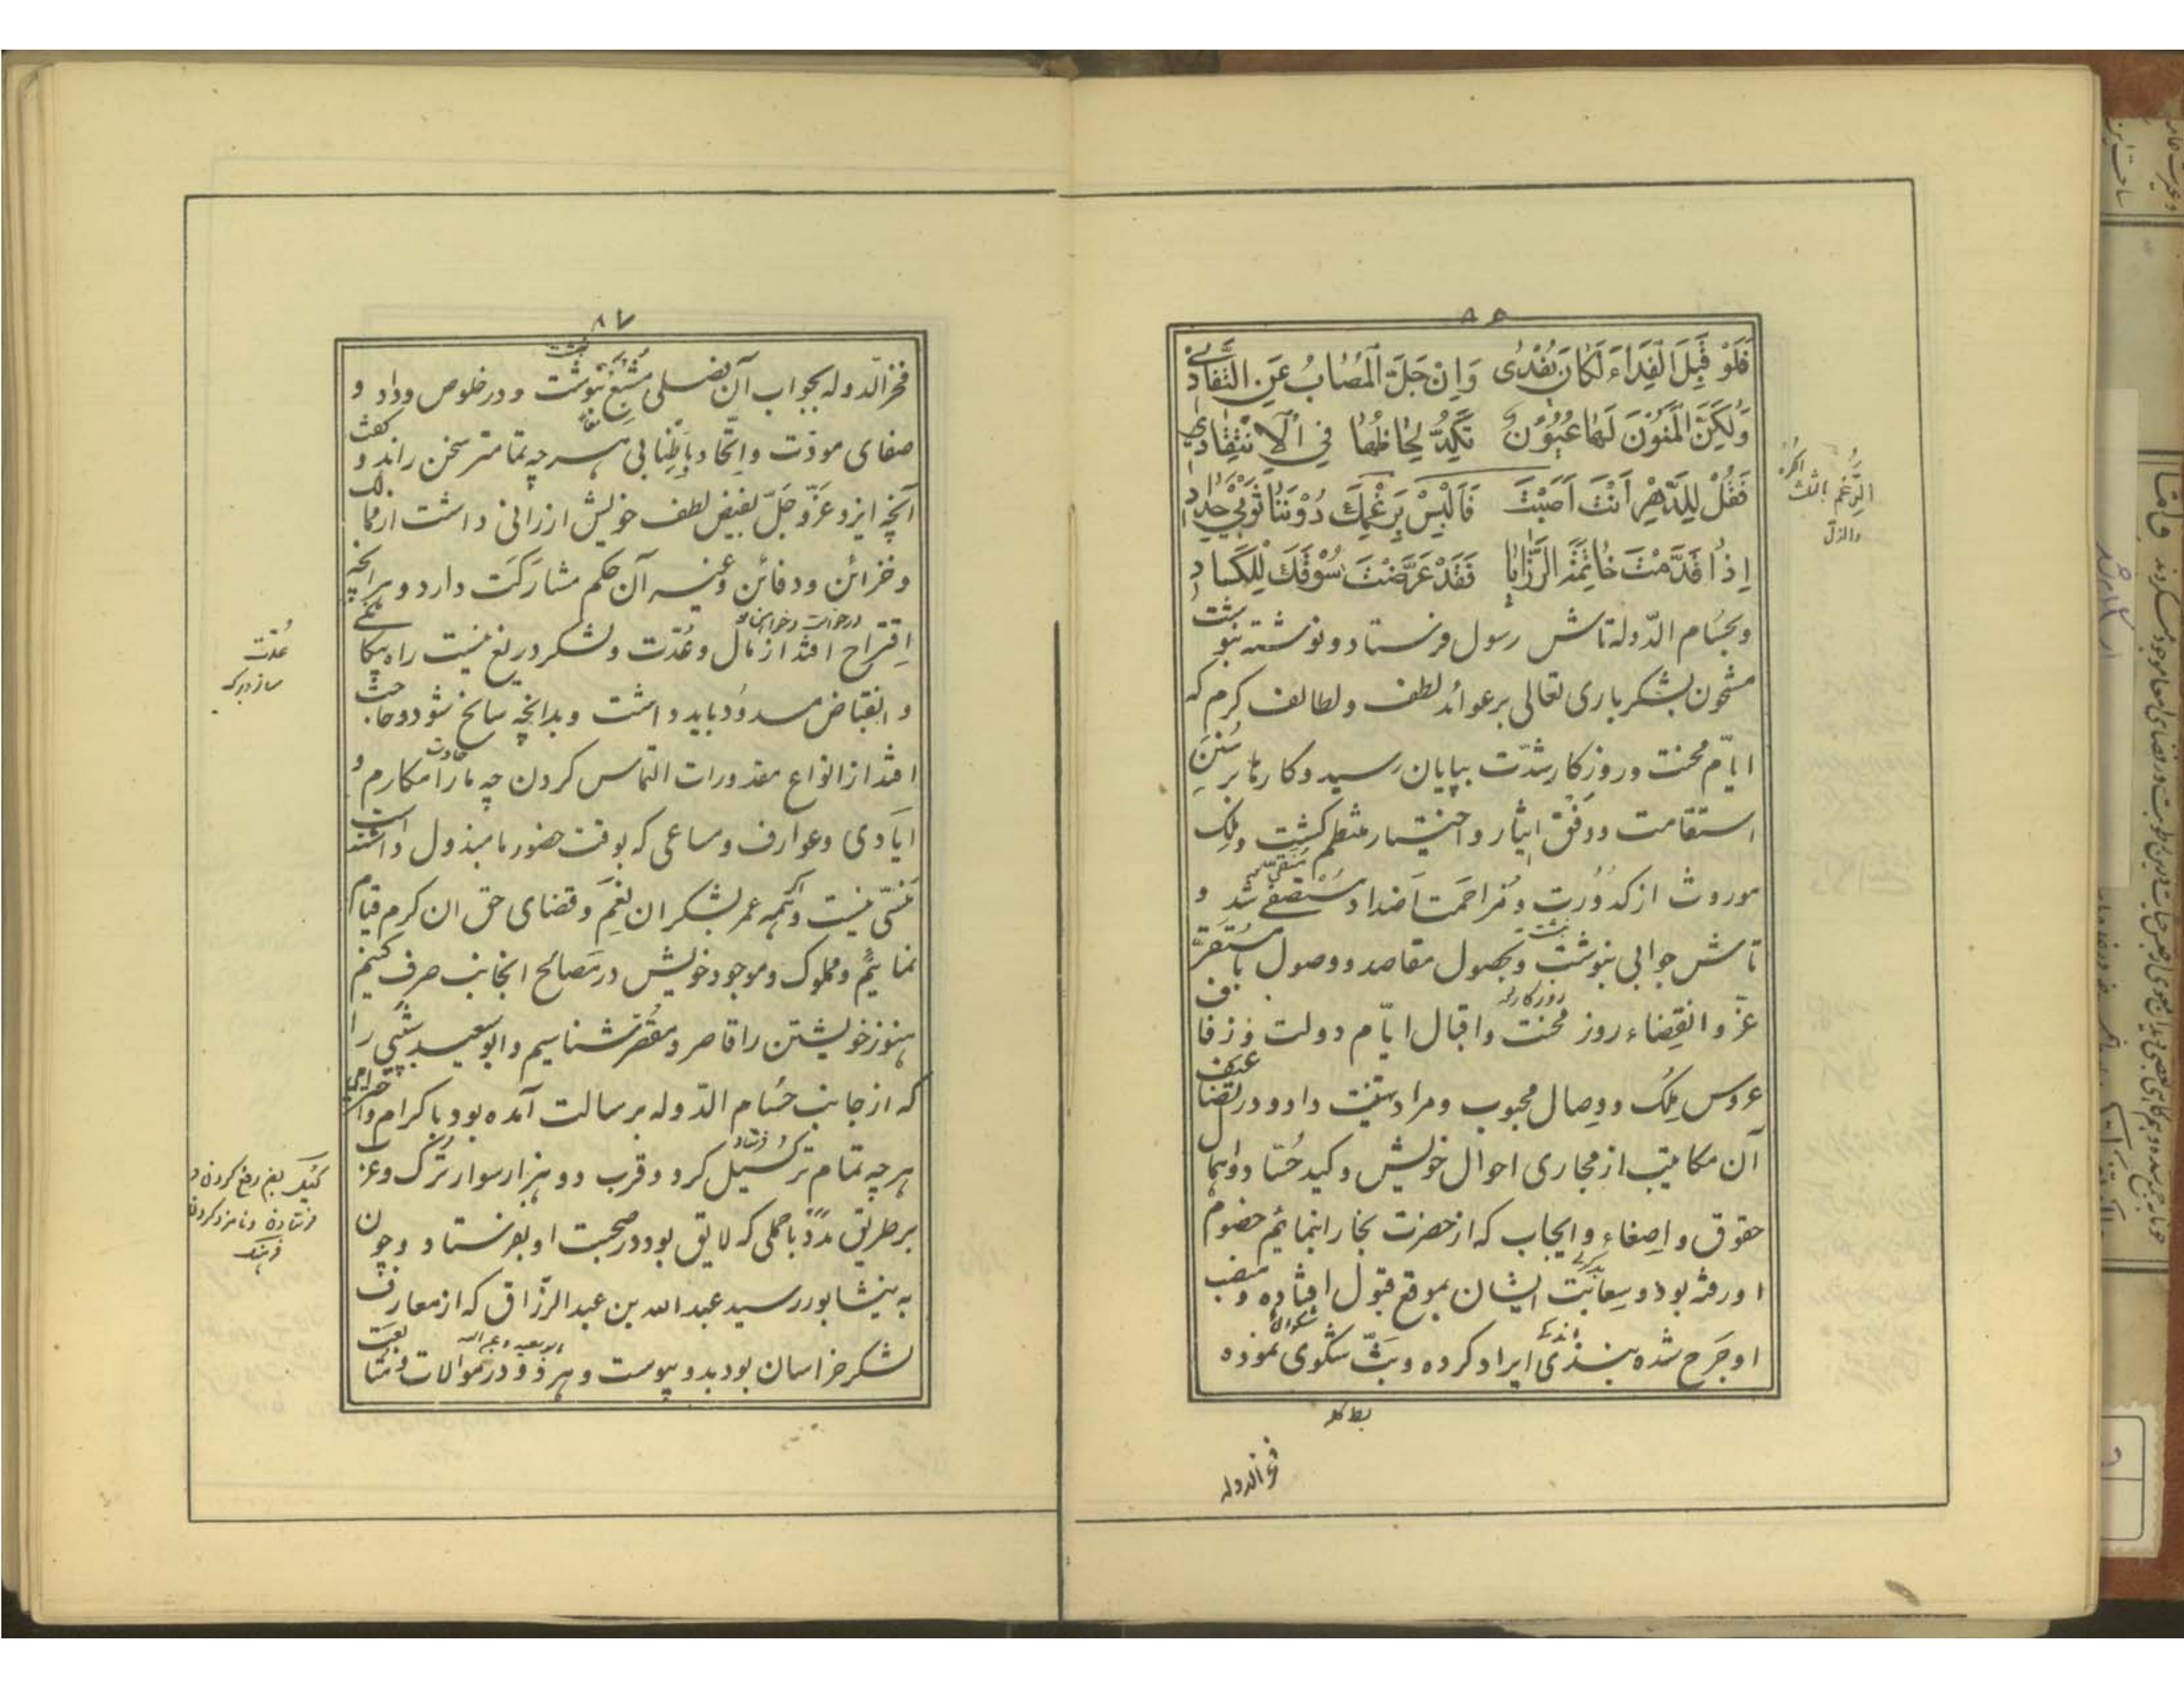 ۸۶
فَلَوْ قُبِلَ الْفِدَاءَ لَكَانَ يُفْدٰى وَاِنْ جَلَّ الْمُصٰابُ عَنِ التَّفَادِیْ
وَلٰكِنَّ الْمَنُوْنَ لَهَا عُيُوْنٌ تَكِدُّ لِحَاظُهَا فِي الْاِنْتِقَادِ
فَقُلْ لِلدَّهْرِ اَنْتَ اَصَبْتَ فَالْبَسْ بِرَغْمِكَ دُوْنَنَا ثَوْبَيْ حِدَادِ
اِذٰا قَدَّمْتَ خَاتِمَةَ الرَّزٰايٰا فَقَدْ عَرَّضْتَ سُوْقَكَ لِلْكَسٰادِ
وبحسام الدّوله تاش رسول فرستاد و نوشته بنوشت
مشحون بشکر باری تعالی بر عوائد لطف و لطائف کرم که
ایّام محنت و روزکار شدّت بپایان رسید و کارها بر سَنَنِ
استقامت و وفق ایثار و اختیار منتظم کشت و ملک
موروث از کدُورت و مُزاحمت اضداد مستصفی شد و
تاش جوابی بنوشت و بحصول مقاصد و وصول بامُستقرّ
عزّ و انقِضاء روز محنت و اقبال ایّام دولت و زفاف
عروس مُلک و وِصال محبوب و مراد تهنیت داد و در تضاعیف
آن مکاتیب از مجاری احوال خویش و کید حُسّاد و اهمال
حقوق و اِصغاء و ایجاب که از حضرت بخارا بنمائم خصوم
او رفته بود و سِعایَت ایشان بموقع قبول افتاده و منصب
او جَرح شده نبذی ایراد کرده و بثّ شکوی نموده
فخرالدوله
الرّغم
والذلّ
۸۷
فخر الدّوله بجواب آن فصلی مُشبَع بنوشت و در خلوص وداد و
صفای مودّت و اتّحاد باطِنابی هر چه تمامتر سخن راند و کفت
آنچه ایزد عَزّ و جَلّ بفیض لطف خویش ارزانی داشت از ممالک
و خزائن و دفائن و غیر آن حکم مشارَکَت دارد و بر انچه
اِقتراح افتد از مال و عُدّت و لشکر دریغ نیست راه بیکانکی
و انقباض مسدُود باید داشت و بدانچه سانح شود و حاجت
افتد از انواع مقدورات التماس کردن چه ما را مکارم و
ایادی و عوارف و مساعی که بوقت حضور ما مبذول داشته است
مَنسِی نیست و همه عمر بشکر ان نِعَم و قضای حق ان کرم قیام
نمائیم و مملوک و موجود خویش در مصالح انجانب صرف کنیم
هنوز خویشتن را قاصر و مقصّر شناسیم و ابو سعید شبیبی را
که از جانب حُسام الدّوله برسالت آمده بود باکرام و احترامی
هر چه تمامتر کسیل کرد و قرب دو هزار سوار ترک و عرب
بر طریق مدد با حملی که لایق بود در صحبت او بفرستاد و چون
به نیشابور رسید عبد الله بن عبد الرزّاق که از معارف
لشکر خراسان بود بدو پیوست و هر دو در موالات و متابعت
عُدّت
فرستادن و نامزد کردن
فرهنک